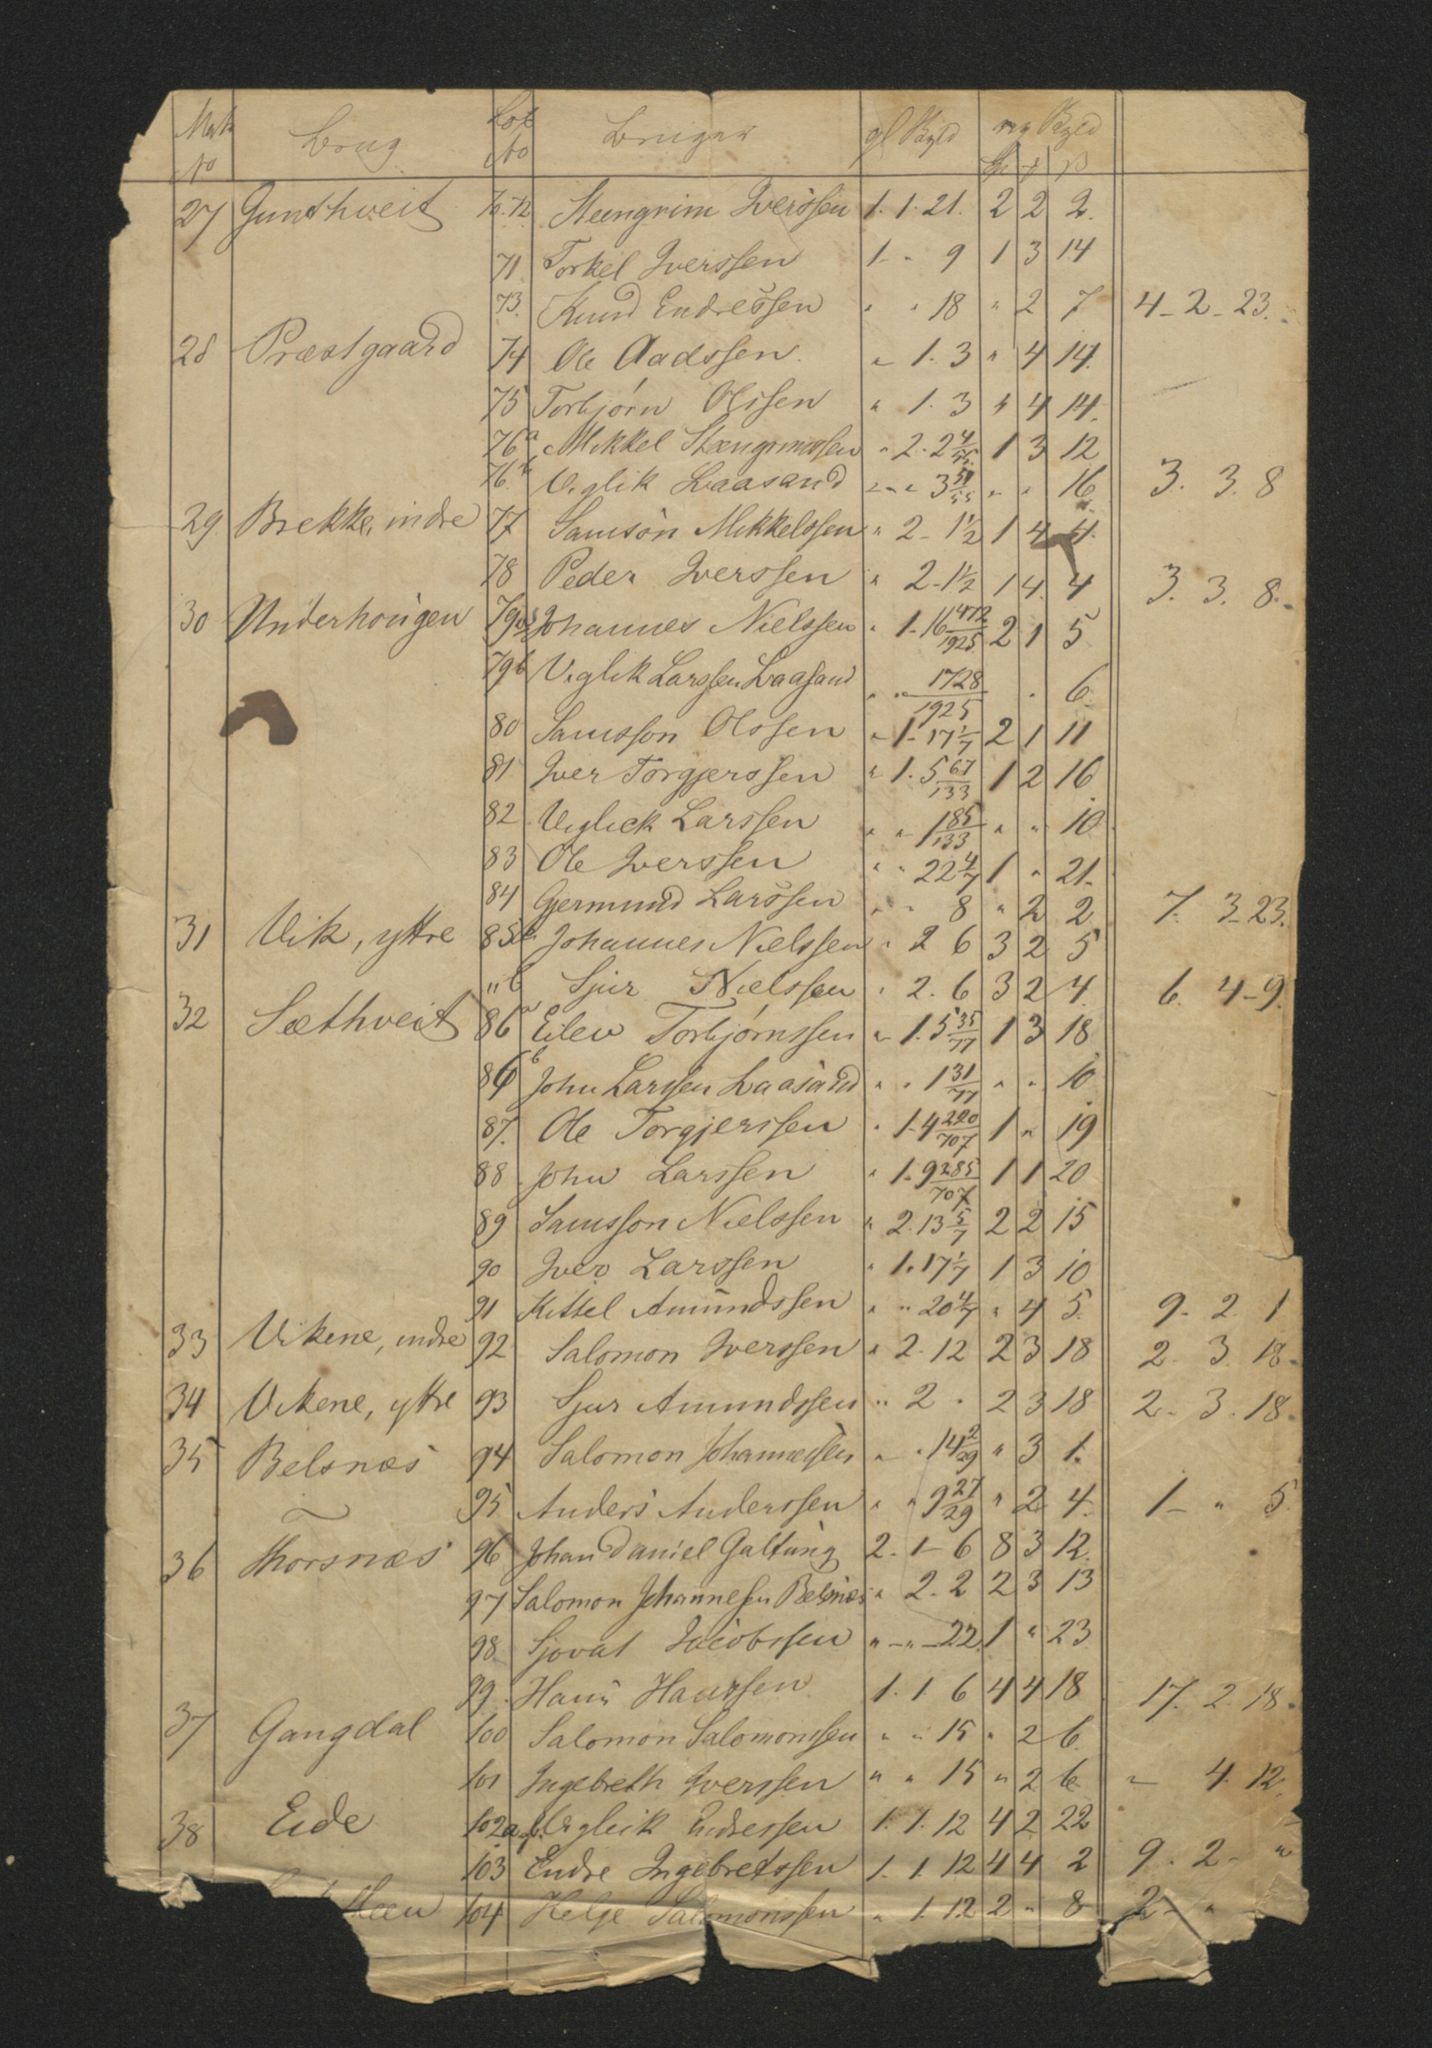 Matr No Brug Løb No Bruger gl Skyld ny Skyld
27 Gunthveit 70.72 Steengrim Iverssen 1. 1. 21. 2 2 2.
71 Torkel Iverssen 1 - " 9 1 3 14
73. Knud Endressen " " 18 " 2 7 4 - 2 - 23.
28 Præstgaard 74 Ole Aadssen. " 1. 3 " 4 14.
75 Torbjørn Olssen " 1. 3 " 4 14.
76a Mikkel Stæengrimssen " 2. 2 4/55 1 3 12
76b Viglik Laasand " - " 3 51/55 " " 16. 3. 3. 8
29 Brekke, indre 77 Samson Mikkelssen " 2 - 1 1/2 1 4 4.
78 Peder Iverssen " 2 - 1 1/2 1 4. 4 3. 3. 8.
30 Underhougen 79a Johannes Nielssen " 1. 16 472/1925 2 1 5
79b Viglik Larssen Laasand " " 1728/1925 " 6.
80 Samsson Olssen " 1 - 17 1/7 2 1 11
81 Iver Torgjerssen " 1. 5 67/133 1 2 16
82 Viglick Larssen " " 1 85/133 " " 10.
83 Ole Iverssen " " 22 4/7 1 " 21.
84 Gjermund Larssen " " 8 " 2 2 7. 3. 23.
31 Vik, yttre 85a Johannes Nielssen " 2 6 3 2 5
" b Sjur Nielssen " 2. 6 3 2 4. 6. 4 - 9.
32 Sæthveit 86a Eilev Torbjørnssen " 1. 5 35/77 1 3 18
86b John Larssen Laasand " " 1 31/77 " " 10
87. Ole Torgjerssen " 1 - 4 220/707 1 " 19
88 John Larssen " 1 - 9 285/707 1 1 20
89 Samsson Nielssen " 2. 13 5/7 2 2 15
90 Iver Larssen " 1. 17 1/7 1 3 10
91 Kittel Amundssen " " 20 4/7 " 4 5. 9. 2. 1
33 Vikene, indre 92 Salomon Iverssen " 2. 12 2 3 18 2. 3. 18.
34 Vikene, yttre 93 Sjur Amundssen " 2 " 2 3 18 2 - 3. 18.
35 Belsnæs 94 Salomon Johannessen " " 14 2/29 " 3 1.
95 Anders Anderssen " " 9 27/29 " 2 4. 1 - " 5.
36 Thorsnæs 96 Johan Daniel Galtung 2. 1 - 6 8 3 12.
97 Salomon Johannessen Belsnæs " 2. 2 2 3 13
98 Sjovat Jacobssen " - " - 22. 1 " 23
99. Hans Hanssen 1. 1. 6 4 4 18 17. 2. 18.
37 Gangdal 100 Salomon Salomonssen " " 15 " 2 6.
101 Ingebreth Iverssen " " 15 " 2 6 " 4. 12.
38 Eide 102a Vigleik Endressen 1. 1. 12 4 2 22
103 Endre Ingebretssen 1. 1. 12 4 4 2 9. 2 - "
104 Helje Salomonssen " 1. 12 2 " 8 2 - "